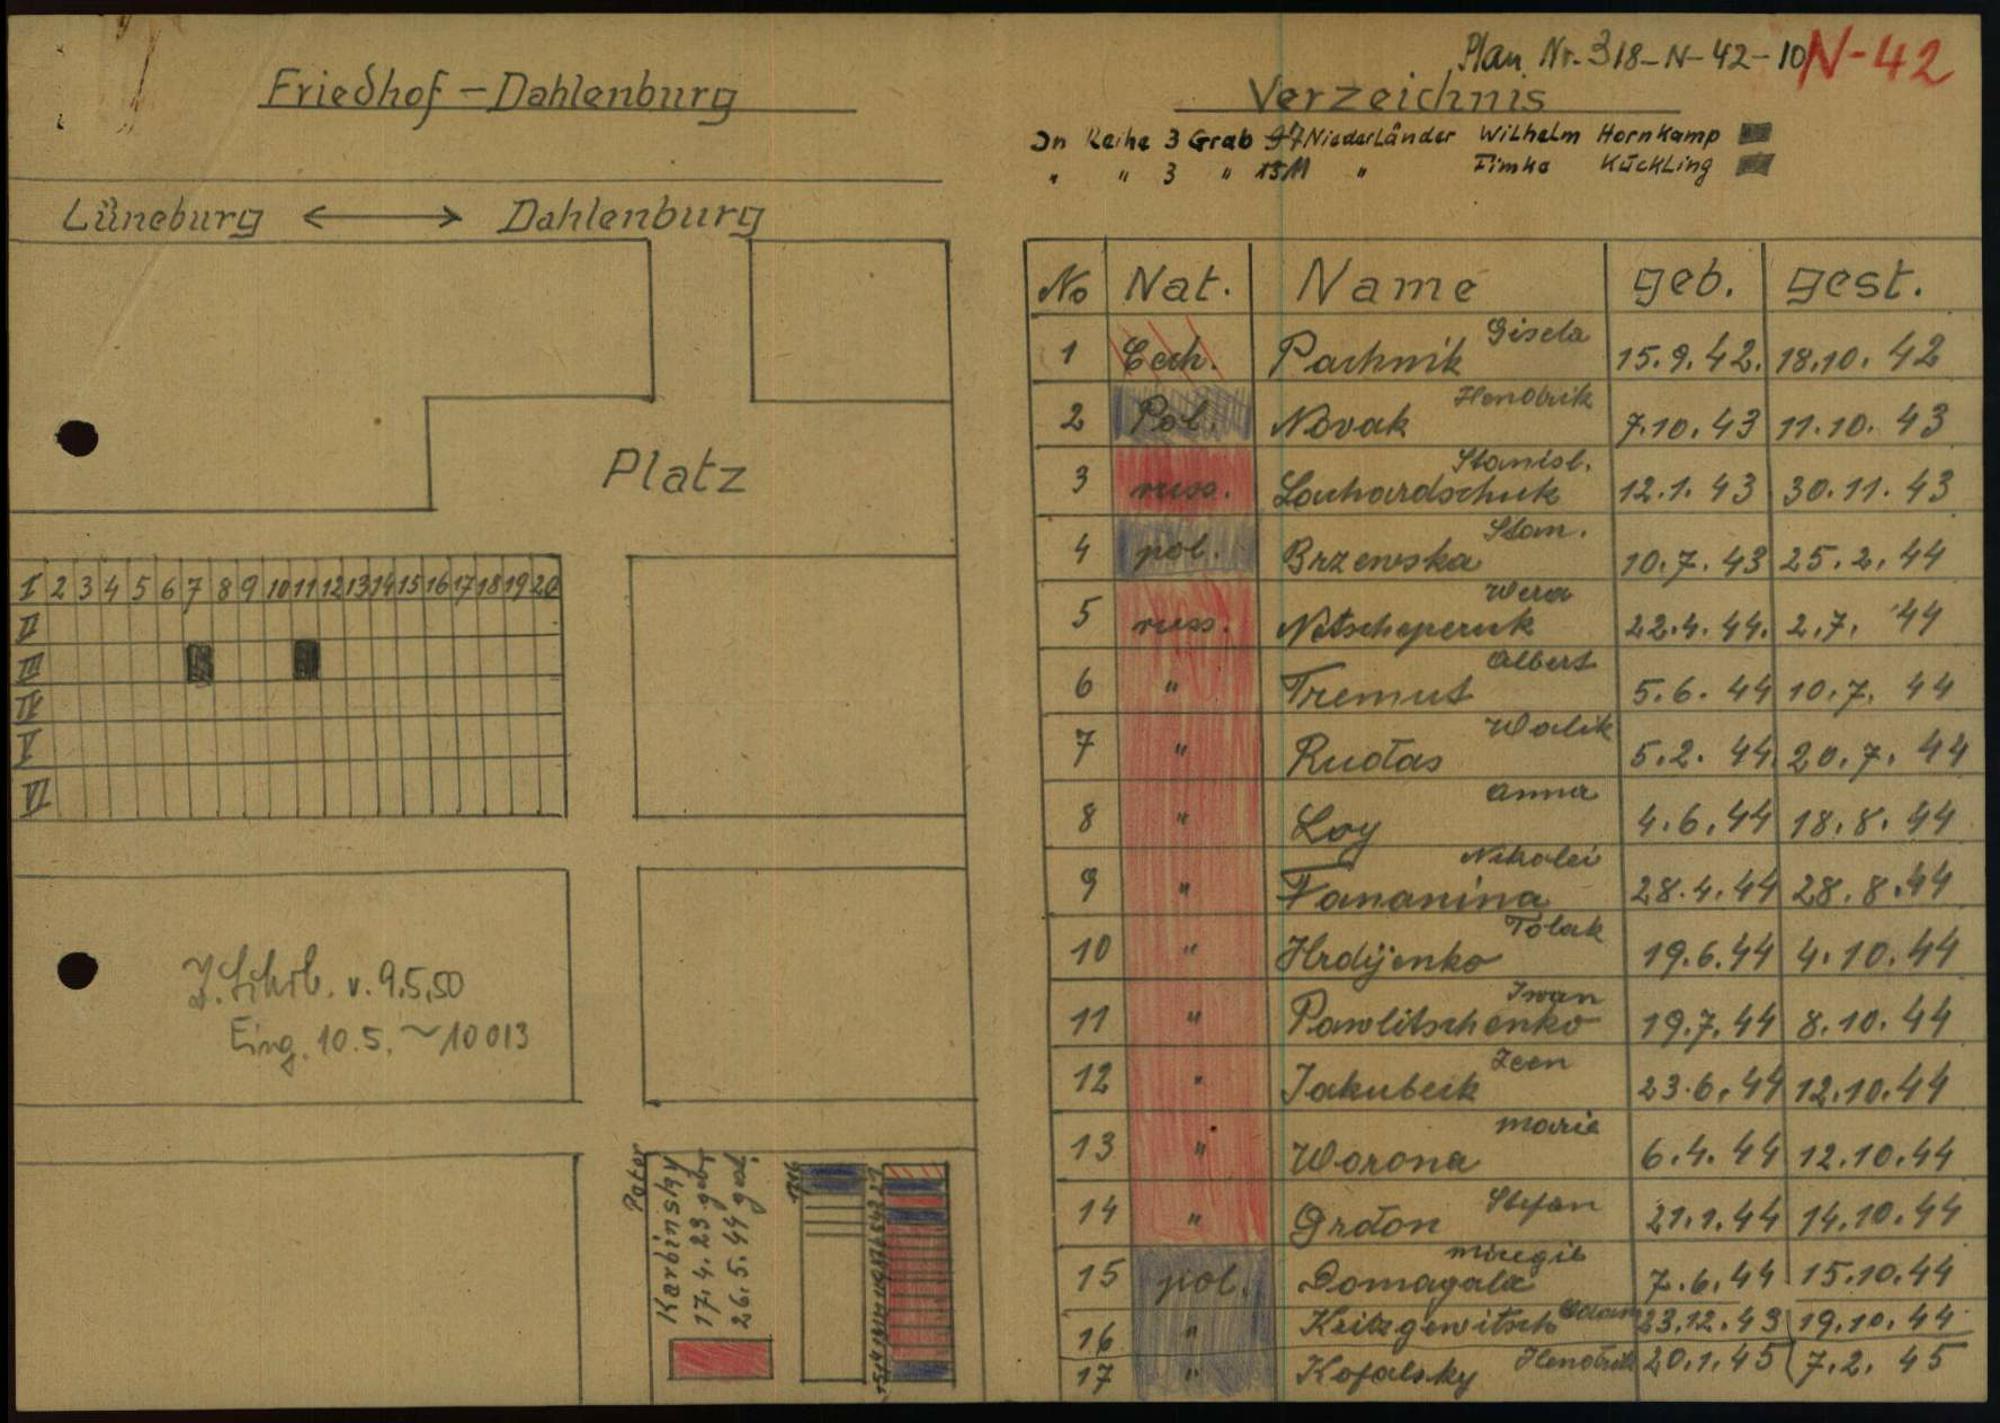 Plan Nr. 318-N-42-10 N-42
Friedhof - Dahlenburg
Lüneburg ⟷ Dahlenburg
Platz
I 2 3 4 5 6 7 8 9 10 11 12 13 14 15 16 17 18 19 20
II
III
IV
V
VI
v. 9.5.50
Eing. 10.5. ~ 10013
Peter
Karbinsky
17.4.23 geb.
26.5.44 gest.
Verzeichnis
In Reihe 3 Grab 7 Niederländer Wilhelm Hornkamp
" " 3 " 11 " Fimke Kückling
No Nat. Name geb. gest.
1 Cech. Pachnik Gisela 15.9.42. 18.10.42
2 Pol. Novak Hendrik 7.10.43 11.10.43
3 russ. Lachardschuk Stanisl. 12.1.43 30.11.43
4 pol. Brzewska Stan. 10.7.43 25.2.44
5 russ. Netscheperuk Wera 22.4.44. 2.7.44
6 " Tremut Albert 5.6.44 10.7.44
7 " Rudas Walik 5.2.44 20.7.44
8 " Loy Anna 4.6.44 18.8.44
9 " Fananina Nikolei 28.4.44 28.8.44
10 " Hrdijenko Tolak 19.6.44 4.10.44
11 " Pawlitschenko Iwan 19.7.44 8.10.44
12 " Jakubeik Leen 23.6.44 12.10.44
13 " Worona Marie 6.4.44 12.10.44
14 " Grdon Stefan 21.1.44 14.10.44
15 pol. Domagala 7.6.44 15.10.44
16 " Kritzgewitsch Adam 23.12.43 19.10.44
17 " Kofalsky Hendrik 20.1.45 7.2.45